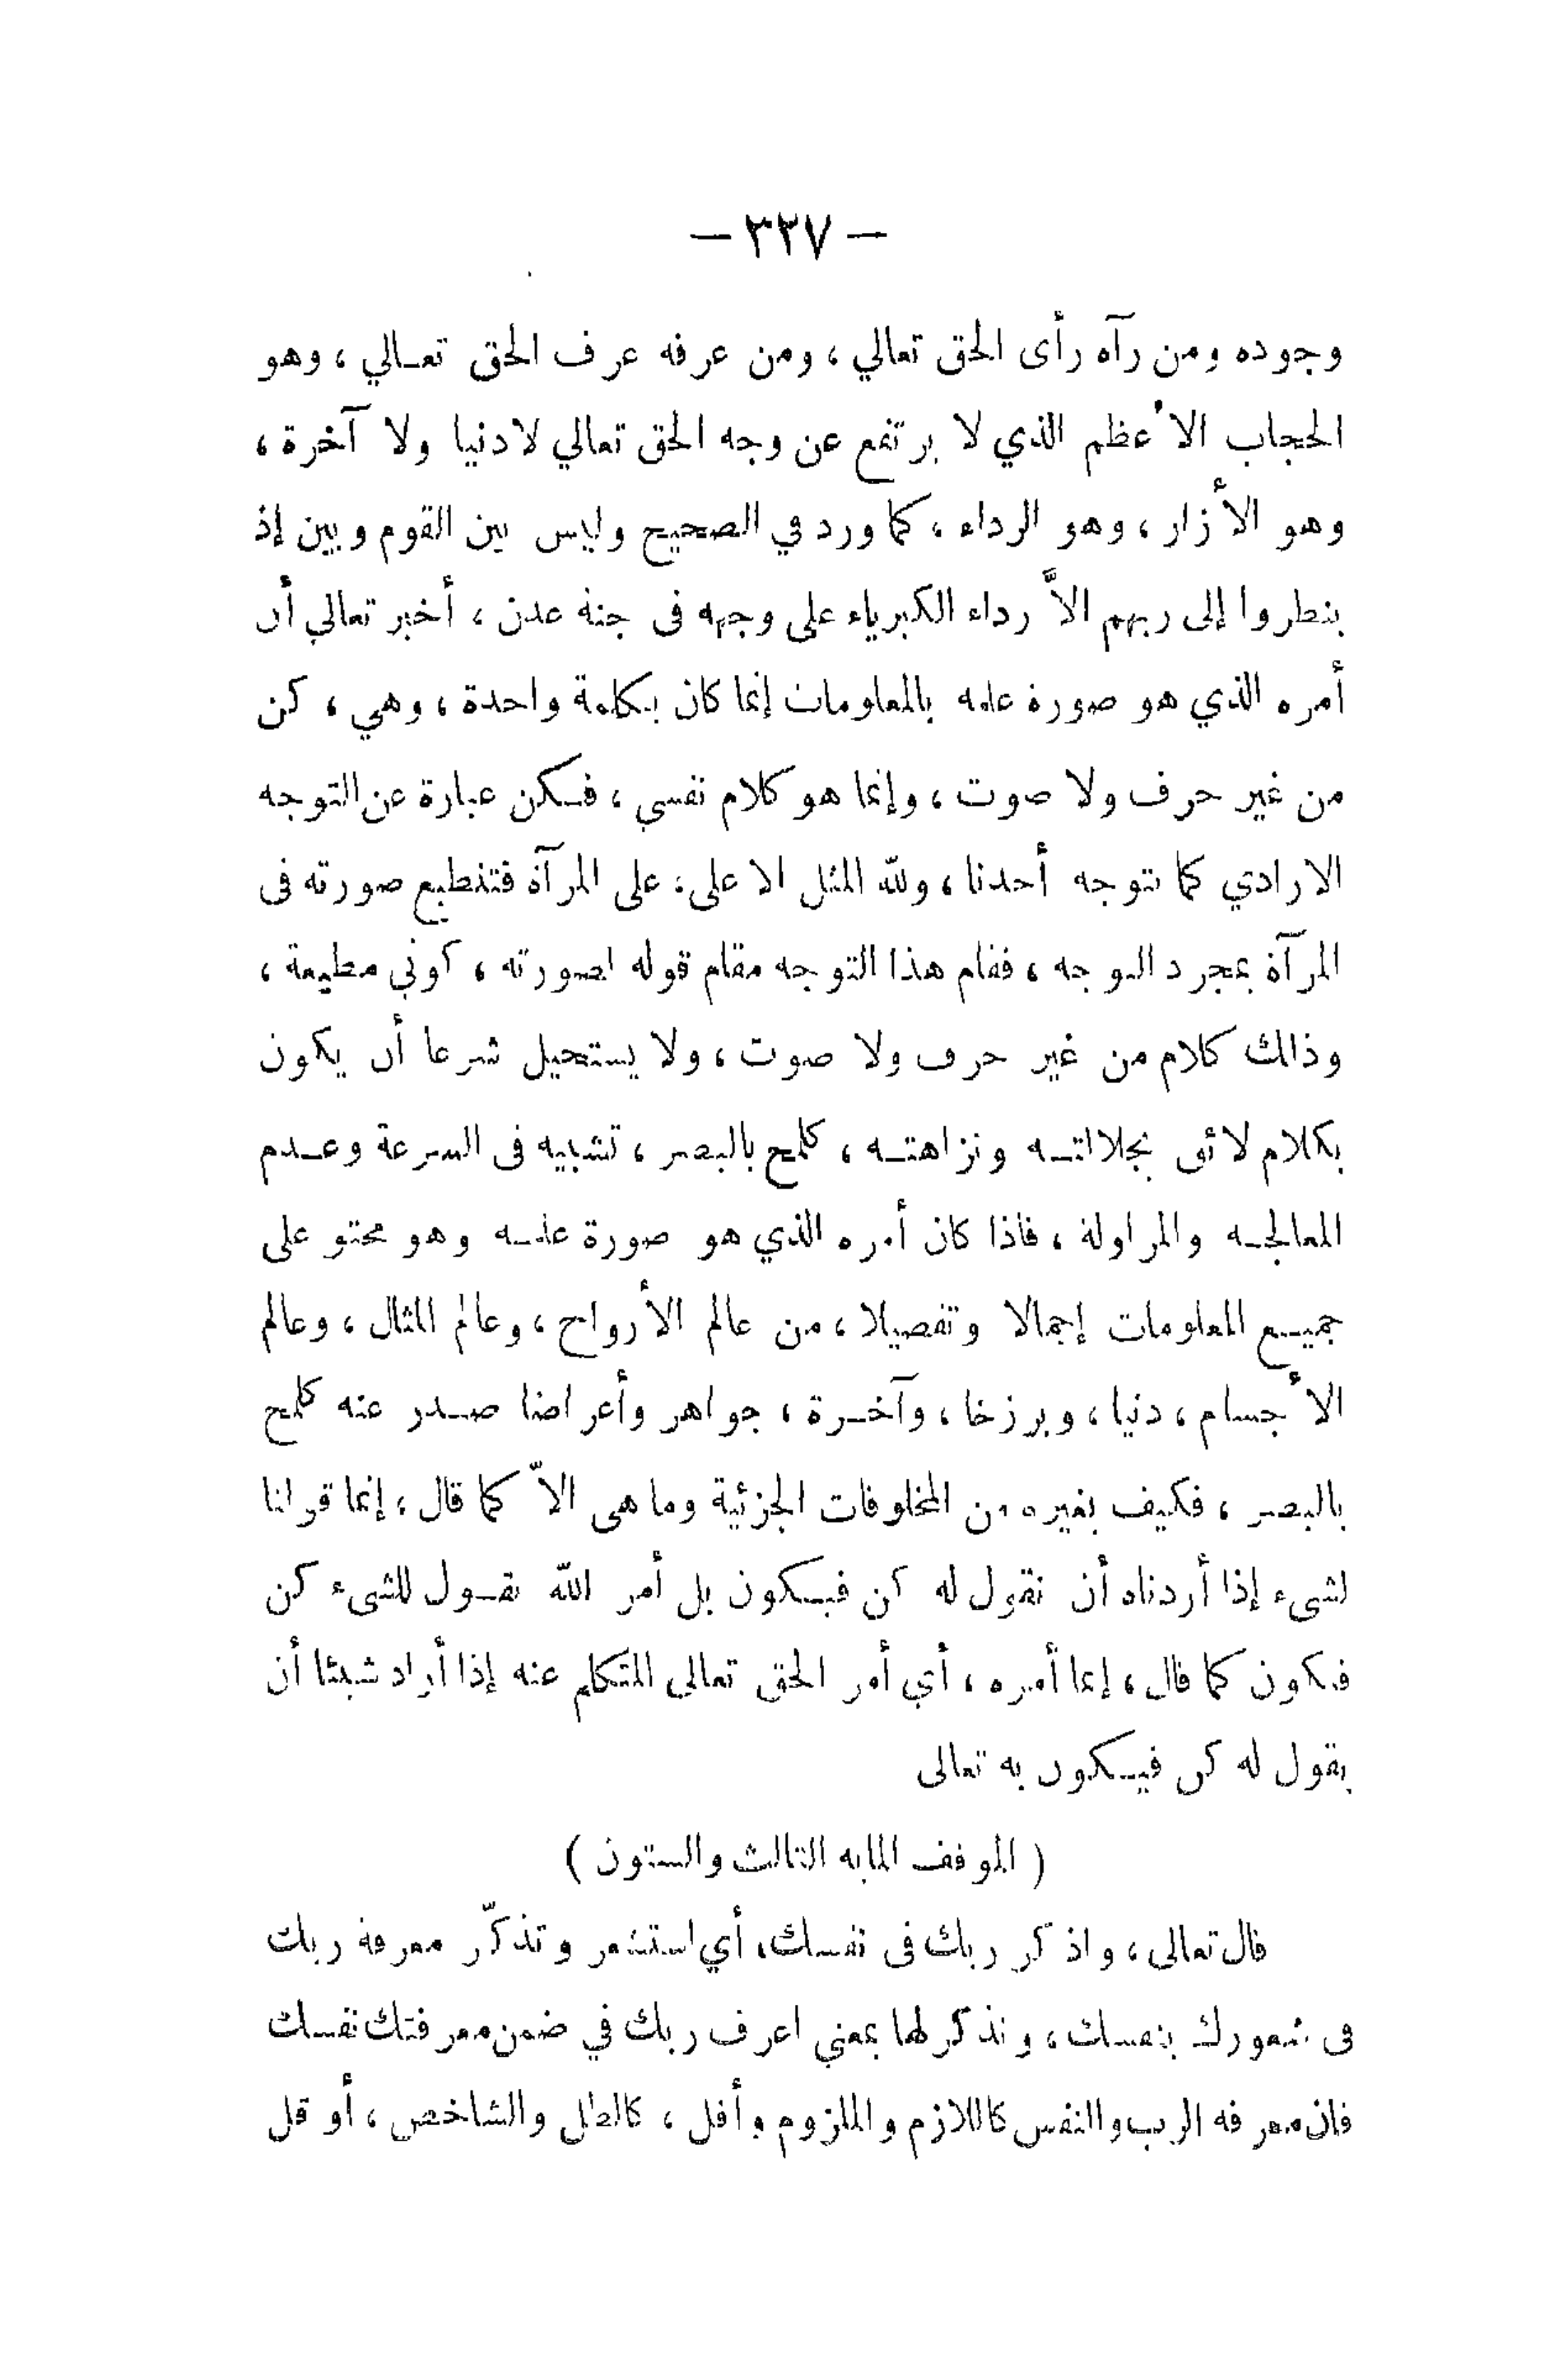 — ٣٣٧ —
وجوده ومن رآه رأى الحق تعالي ، ومن عرفه عرف الحق تعالي ، وهو
الحجاب الأعظم الذي لا يرتفع عن وجه الحق تعالي لا دنيا ولا آخرة ،
وهو الأزار ، وهو الرداء ، كما ورد في الصحيح وليس بين القوم وبين إذ
ينظروا إلى ربهم الاَّ رداء الكبرياء على وجهه فى جنة عدن ، أخبر تعالي أن
أمره الذي هو صورة علمه بالمعلومات إنما كان بكلمة واحدة ، وهي ، كن
من غير حرف ولا صوت ، وإنما هو كلام نفسي ، فكن عبارة عن التوجه
الارادي كما يتوجه أحدنا ، ولله المثل الاعلى ، على المرآة فتنطبع صورته فى
المرآة بمجرد التوجه ، فقام هذا التوجه مقام قوله لصورته ، كوني مطيعة ،
وذلك كلام من غير حرف ولا صوت ، ولا يستحيل شرعا أن يكون
بكلام لائق بجلالته ونزاهته ، كلمح بالبصر ، تشبيه فى السرعة وعدم
المعالجه والمزاولة ، فاذا كان أمره الذي هو صورة علمه وهو محتو على
جميع المعلومات إجمالا وتفصيلا ، من عالم الأرواح ، وعالم المثال ، وعالم
الأجسام ، دنيا ، وبرزخا ، وآخرة ، جواهر وأعراضا صدر عنه كلمح
بالبصر ، فكيف بغيره من المخلوقات الجزئية وما هى الاّ كما قال ، إنما قولنا
لشىء إذا أردناه أن نقول له كن فيكون بل أمر الله يقول للشىء كن
فيكون كما قال ، إنما أمره ، أي أمر الحق تعالى المتكلم عنه إذا أراد شيئا أن
يقول له كن فيكون به تعالى
( الموقف المايه الثالث والستون )
قال تعالى ، واذكر ربك فى نفسك ، أي استشعر وتذكّر معرفة ربك
فى شعورك بنفسك ، وتذكر لها بمعني اعرف ربك في ضمن معرفتك نفسك
فان معرفه الرب والنفس كاللازم والملزوم وأقل ، كالظل والشاخص ، أو قل